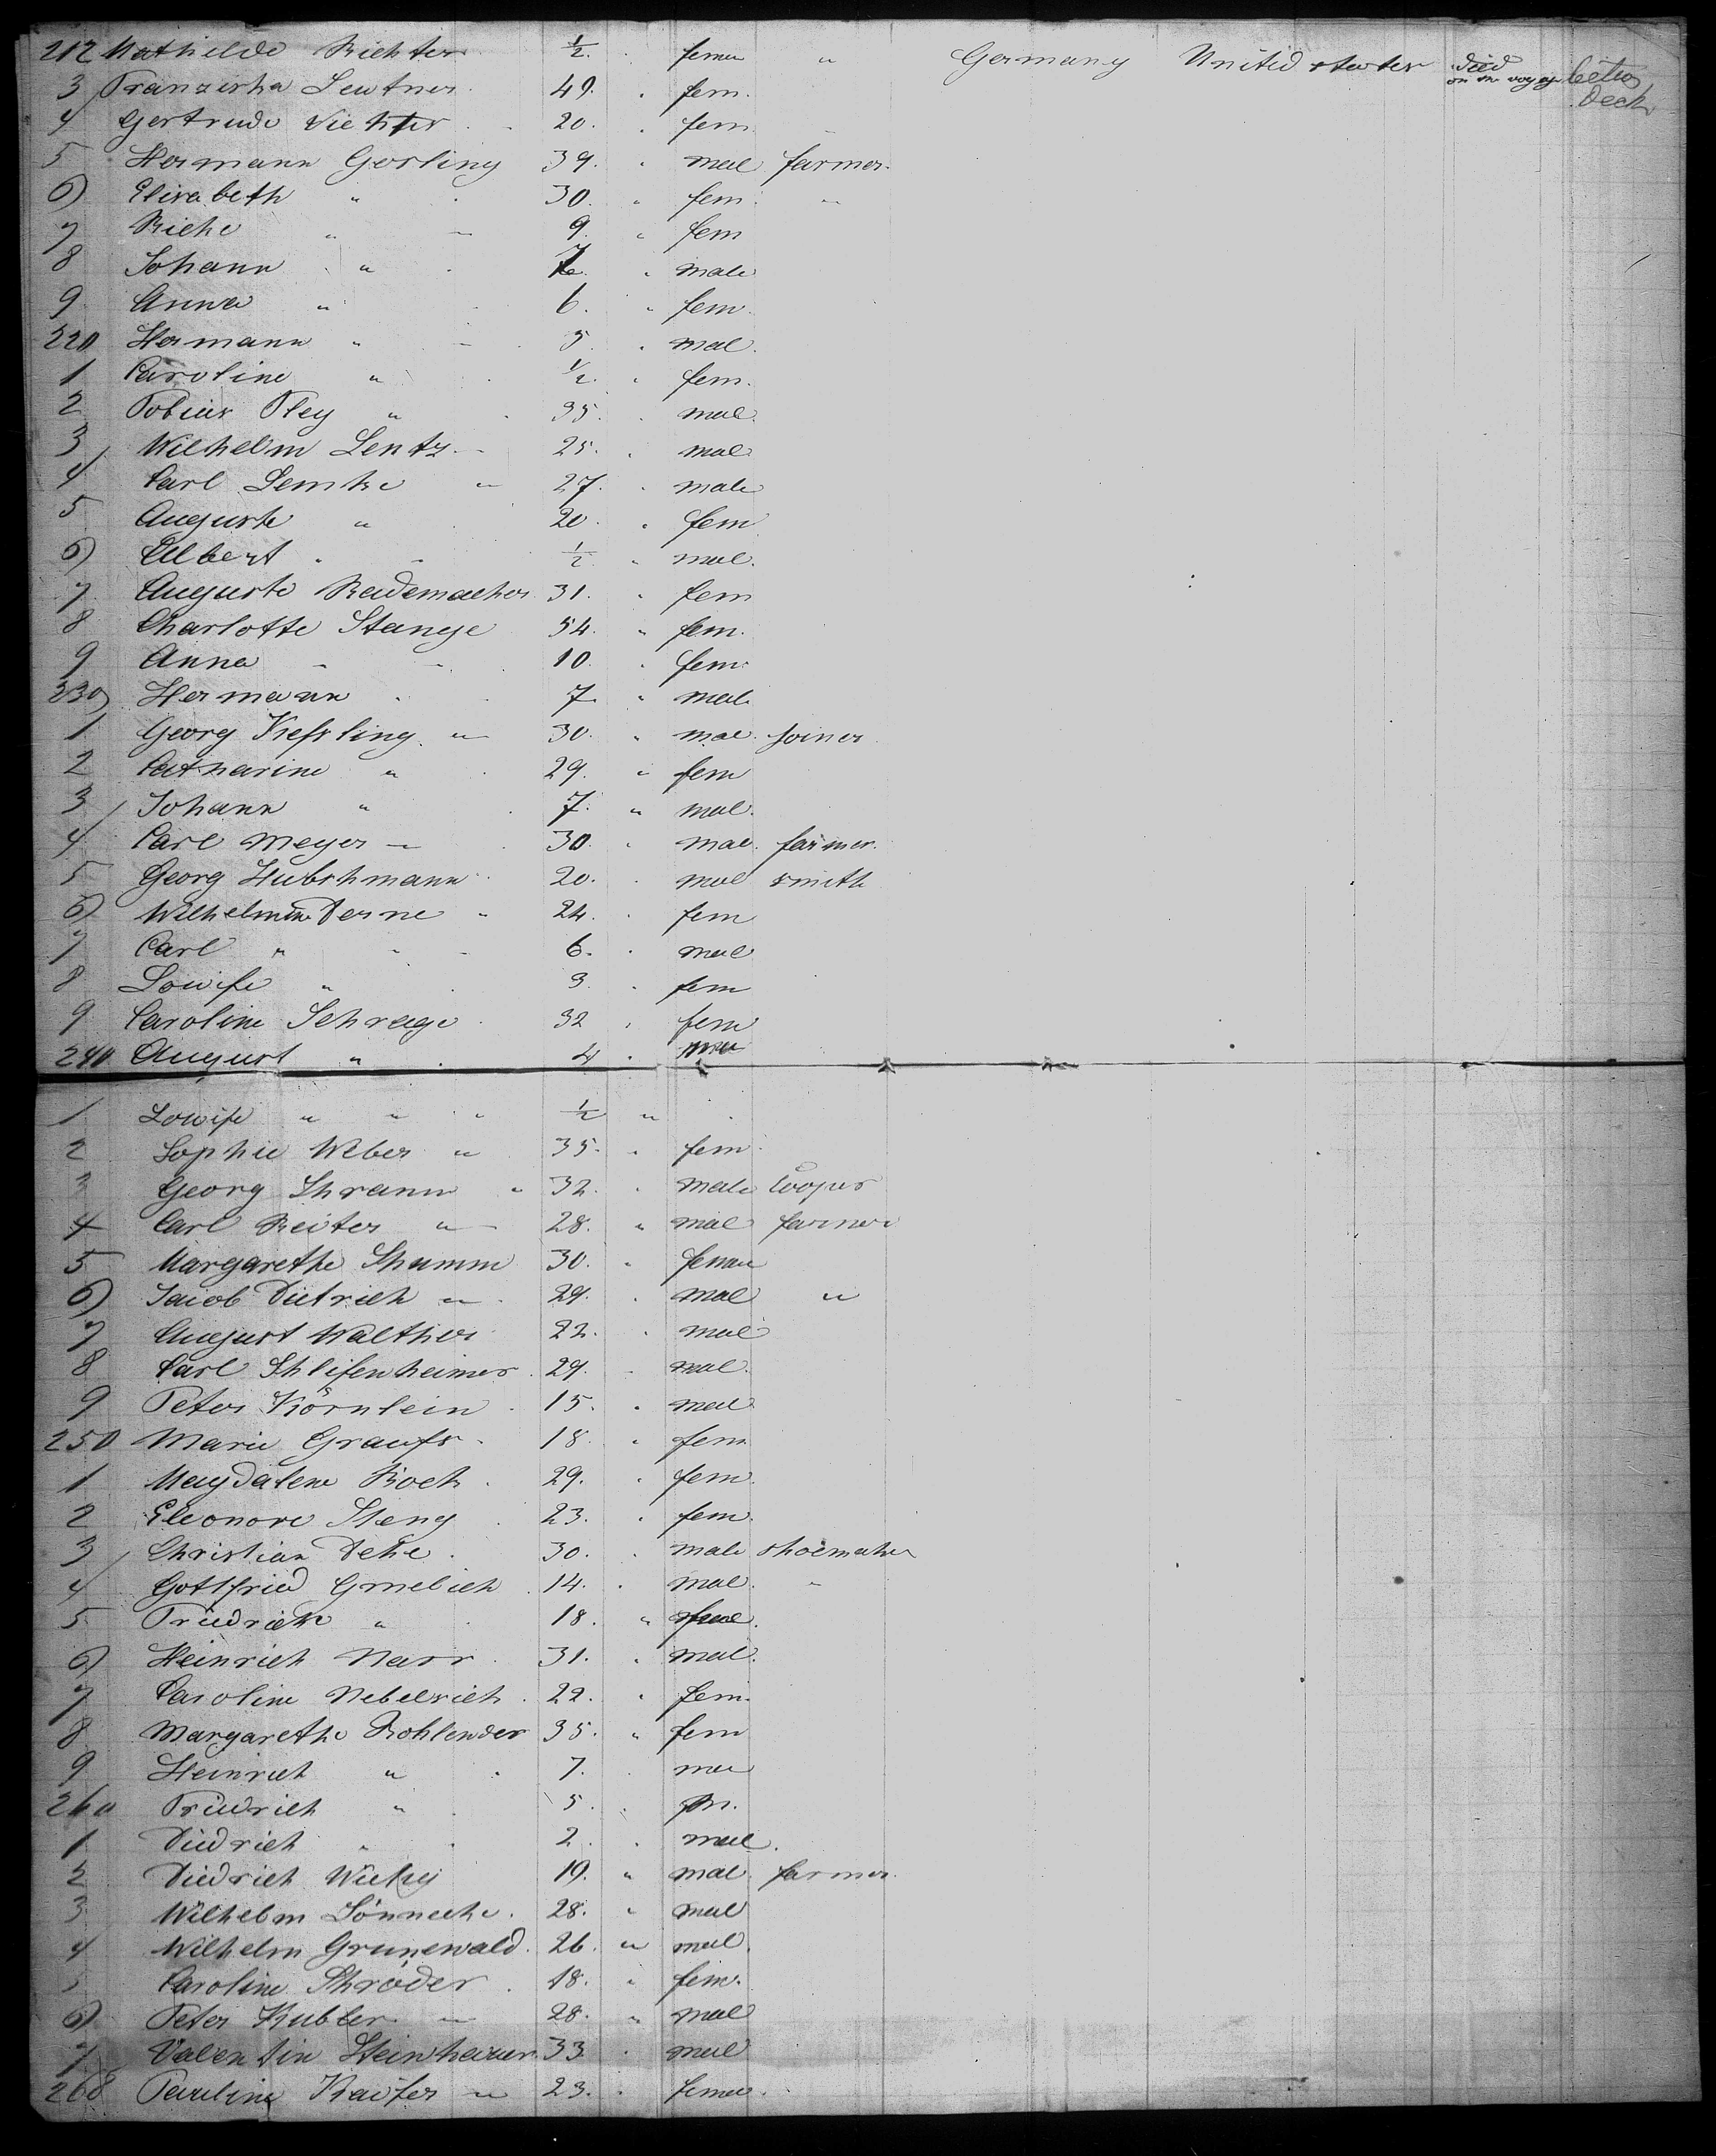 212 Mathilde Richter ½ " femu " Germany United states died on the voyage betw Deck
3 Franziska Leutner 49. " fem.
4 Gertrude Richter 20. " fem
5 Hermann Gerling 39. " mal farmer.
6) Elisabeth " 30. " fem "
7 Rieke " 9. " fem
8 Johann " 7 " male
9 Anna " 6. " fem.
220 Hermann " 5 " mal.
1 Caroline " ½. " fem.
2 Tobias Fley " 35. " mal.
3 Wilhelm Lentz 25. " mal
4 Carl Lemke " 27. " male
5 Auguste " 20. " fem
6) Albert " ½ " mal.
7 Auguste Rademacher 31. " fem
8 Charlotte Stange 54. " fem.
9 Anna " 10. " fem.
230) Hermann " 7. " male
1 Georg Kessling " 30. " mal. joiner
2 Catharine " 29. " fem
3 Johann " 7. " mal.
4 Carl Meyer " 30. " mal. farmer.
5 Georg Hubshmann 20. " mal smith
6) Wilhelmine Derne " 24. " fem
7 Carl " 6. " mal
8 Lowise " 3. " fem
9 Caroline Schrage 32 " fem
240 August " 4 "
1 Lowise " " " ½ "
2 Sophie Weber " 35. " fem.
3 Georg Shramm " 32. " male Cooper
4 Carl Reiter " 28. " mal farmer
5 Margarethe Shumm 30. " femau
6) Jacob Dietrich " 29. " mal "
7 August Walther 22. " mal
8 Carl Shlifenheimer 29. " mal.
9 Peter Körnlein 15. " mal
250 Marie Grauss 18. " fem
1 Magdalene Koch 29. " fem.
2 Eleonore Stang 23. " fem.
3 Christian Dehe 30. " male shoemaker
4 Gottfried Gmelich 14. " mal. "
5 Friedrich " 18. "
6) Heinrich Narr 31. " mal.
7 Caroline Nebelrich 22. " fem.
8 Margarethe Rohlender 35. " fem
9 Heinrich " 7. mal
260 Friedrich " 5. "
1 Diedrich " 2. " mal.
2 Diedrich 19. " mal. farmer.
3 Wilhelm Lönnecke 28. " mal
4 Wilhelm Grunewald 26. " mal.
5 Caroline Shröder 18. " fem.
6) Peter Kubler " 28. " mal
7 Valentin Steinhauer 33. " mal
268 Pauline Kaiser " 23. " femu.